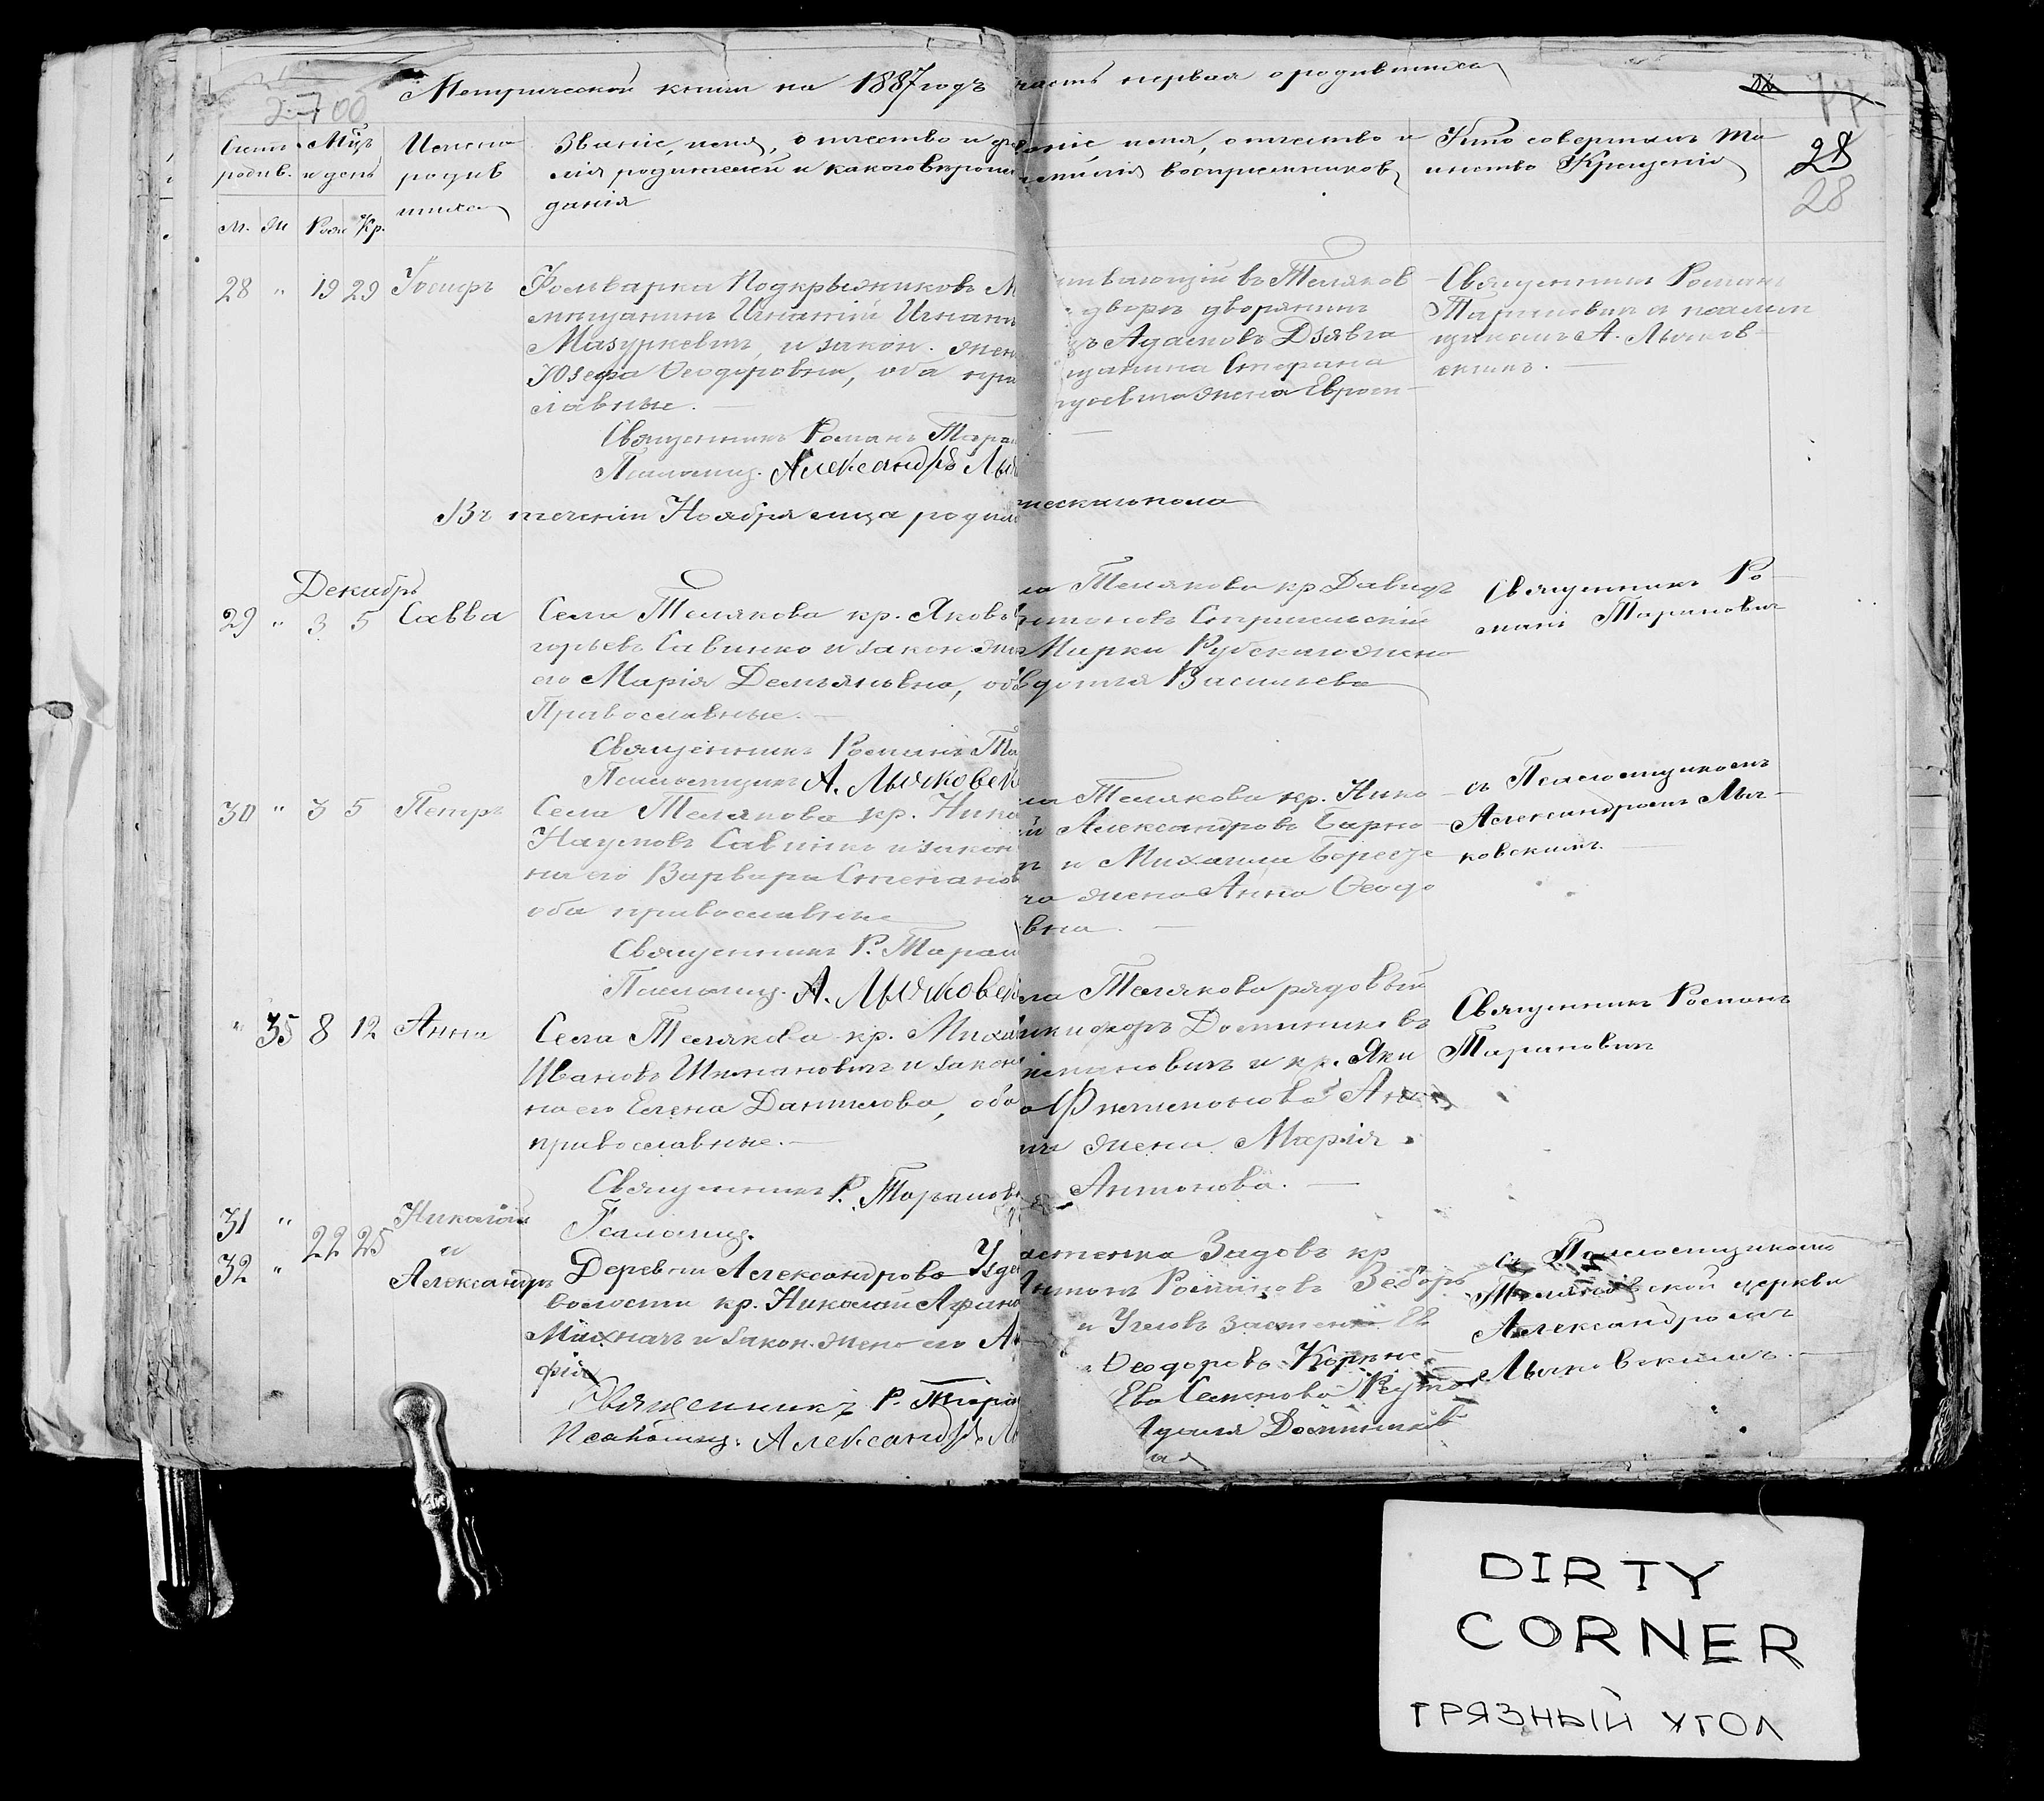 Метрической книги на 1887 годъ часть первая о родившихся
2700
28
28
Счетъ родив.
Мѣц и день
Имена родив шихся
Званіе, имя, отчество и фа
милія родителей и какого вѣроисп
данія
ваніе, имя, отчество и
милія воспріемниковъ
Кто совершалъ та
инство Крещенія
М. Ж Рож Кр.
28 " 19 29 Іосифъ
Фольварка Подкрыжиковъ М
мѣщанинъ Игнатій Игнат
Мазуркевичъ, и закон. жен
Юзефа Ѳеодоровна, оба пра
славные.
Священникъ Романъ Таран
Псаломщ. Александръ Лыс
живающій въ Теляков
дворѣ дворянинъ
ъ Адамовъ Дзявга
щанина Стефана
жена Евфрос
Священникъ Романъ
Тарановичъ съ псаломщ
щикомъ А. Лысков
скимъ.
Въ теченіи Ноября мѣца родило
жескаго пола
Декабрь
29 " 3 5 Савва
Села Телякова кр. Яковъ
горьевъ Савинко и закон. жен
его Марія Демьяновна, об
Православные.
Священникъ Романъ Та
Псаломщикъ А. Лысковск
ла Телякова кр Давидъ
Марки Рубскаго жена
вдотія Васильева
Священникъ Ро
манъ Тарановичъ
30 " 3 5 Петръ
Села Телякова кр. Нико
Наумовъ Савинко и закон
на его Варвара Степанов
оба православные
Священникъ Р. Таран
Псаломщ. А. Лысковск
ла Телякова кр. Нико
й Александровъ Барно
и Михаила
го жена Анна Ѳеодо
вна.
съ Псаломщикомъ
Александромъ Лыс
ковскимъ.
" 35 8 12 Анна
Села Телякова кр. Миха
Ивановъ Шимановичъ и закон
на его Елена Данилова, оба
православные.
Священникъ Р. Таранов
Псаломщ.
ла Телякова рядовый
икифоръ Доминиковъ
имановичъ и кр. Яки
а Филимонова
жена Марія
Антонова.
Священникъ Романъ
Тарановичъ
31 "
32 " 22 25
Николай
и
Александръ
Деревни Александрово Узде
волости кр. Николай Афана
Михначъ и закон. жена его А
фія
Священникъ Р. Таран
Псаломщ. Александръ Л
астенка Задовъ кр
Антонъ Романовъ
и
Ѳеодорова
Ева Семенова
Доминик
ая
съ Псаломщикомъ
Теляковской церкви
Александромъ
Лысковскимъ.
DIRTY
CORNER
ГРЯЗНЫЙ УГОЛ